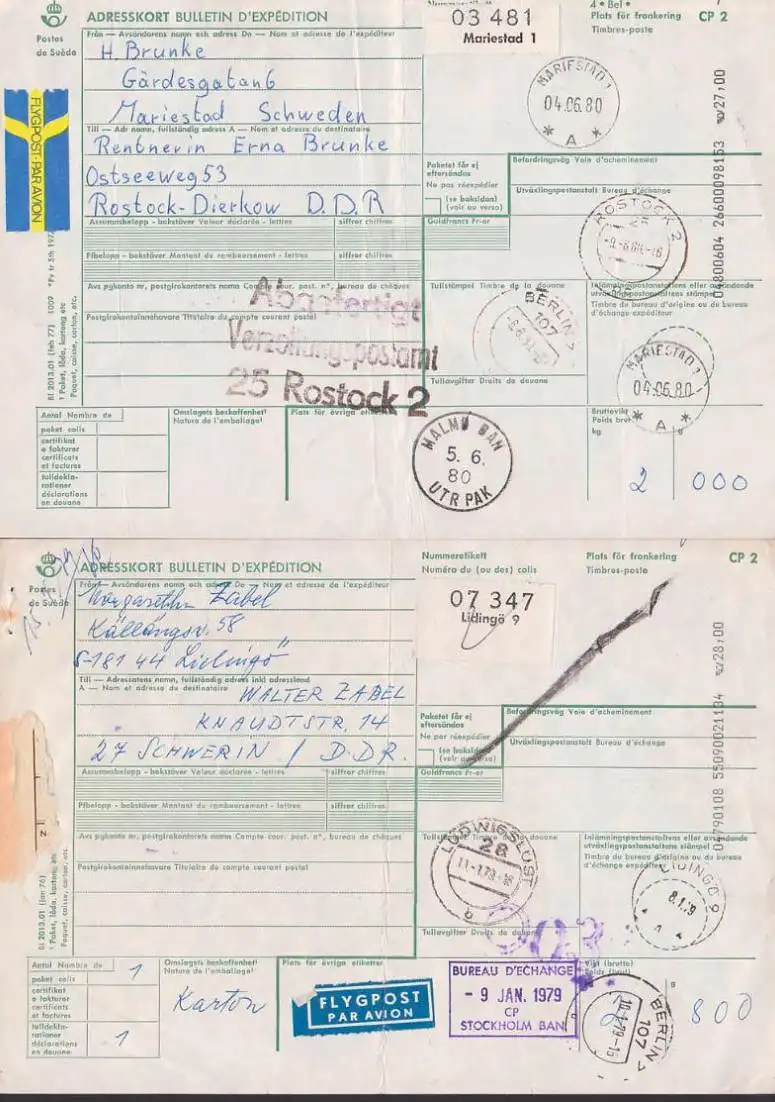 ADRESSKORT BULLETIN D'EXPÉDITION
Postes
de Suède
Från — Avsändarens namn och adress De — Nom et adresse de l'expéditeur
H. Brunke
Gärdesgatan 6
Mariestad Schweden
03 481
Mariestad 1
4 * Bel *
Plats för frankering
Timbres-poste
CP 2
MARIESTAD 1
04.06.80
* A *
27,00
04800604 26600098153
FLYGPOST · PAR AVION
Till — Adr namn, fullständig adress A — Nom et adresse du destinataire
Rentnerin Erna Brunke
Ostseeweg 53
Rostock-Dierkow D.D.R
Paketet får ej
eftersändas
Ne pas réexpédier
(se baksidan)
(voir au verso)
Befordringsväg Voie d'acheminement
Utväxlingspostanstalt Bureau d'échange
ROSTOCK 2
25
Assuransbelopp - bokstäver Valeur déclarée - lettres
siffror chiffres
Guldfrancs Fr-or
Pfbelopp - bokstäver Montant du remboursement - lettres
siffror chiffres
Avs pgkonto nr, postgirokontorets namn Compte cour. post. n°, bureau de chèques
Tullstämpel Timbre de la douane
Inlämningspostanstaltens eller avsändande
utväxlingspostanstaltens stämpel
Timbre du bureau d'origine ou du bureau
d'échange expéditeur
Postgirokontoinnehavare Titulaire du compte courant postal
Abgefertigt
Verzollungspostamt
25 Rostock 2
BERLIN
107
MARIESTAD 1
04.06.80
* A *
Tullavgifter Droits de douane
BI 2013.01 (feb 77) 1009
1 Paket, låda, kartong etc
Paquet, caisse, carton, etc.
Antal Nombre de
paket colis
certifikat
o fakturor
certificats
et factures
tulldekla-
rationer
déclarations
en douane
Omslagets beskaffenhet
Nature de l'emballage
Plats för övriga etiketter
MALMÖ BAN
5. 6.
80
UTR PAK
Bruttovikt
Poids brut
kg
g
2 000
ADRESSKORT BULLETIN D'EXPÉDITION
Postes
de Suède
Från — Avsändarens namn och adress De — Nom et adresse de l'expéditeur
Zabel
Källängsv. 58
S-181 44 Lidingö
Nummeretikett
Numéro du (ou des) colis
07 347
Lidingö 9
Plats för frankering
Timbres-poste
CP 2
28,00
04790108 55090021134
Till — Adressatens namn, fullständig adress inkl adressland
A — Nom et adresse du destinataire
WALTER ZABEL
KNAUDTSTR. 14
27 SCHWERIN / D.D.R.
Paketet får ej
eftersändas
Ne pas réexpédier
(se baksidan)
(voir au verso)
Befordringsväg Voie d'acheminement
Utväxlingspostanstalt Bureau d'échange
Assuransbelopp - bokstäver Valeur déclarée - lettres
siffror chiffres
Guldfrancs Fr-or
Pfbelopp - bokstäver Montant du remboursement - lettres
siffror chiffres
Avs pgkonto nr, postgirokontorets namn Compte cour. post. n°, bureau de chèques
Tullstämpel Timbre de la douane
Inlämningspostanstaltens eller avsändande
utväxlingspostanstaltens stämpel
Timbre du bureau d'origine ou du bureau
d'échange expéditeur
Postgirokontoinnehavare Titulaire du compte courant postal
LUDWIGSLUST
28
b
LIDINGÖ 9
8.1.79
* A *
Tullavgifter Droits de douane
BI 2013.01 (jan 76)
1 Paket, låda, kartong etc
Paquet, caisse, carton, etc.
Antal Nombre de
paket colis
1
certifikat
o fakturor
certificats
et factures
tulldekla-
rationer
déclarations
en douane
1
Omslagets beskaffenhet
Nature de l'emballage
Karton
Plats för övriga etiketter
FLYGPOST
PAR AVION
BUREAU D'ECHANGE
- 9 JAN. 1979
CP
STOCKHOLM BAN
Vikt (brutto)
Poids (brut)
g
BERLIN
107
2 800